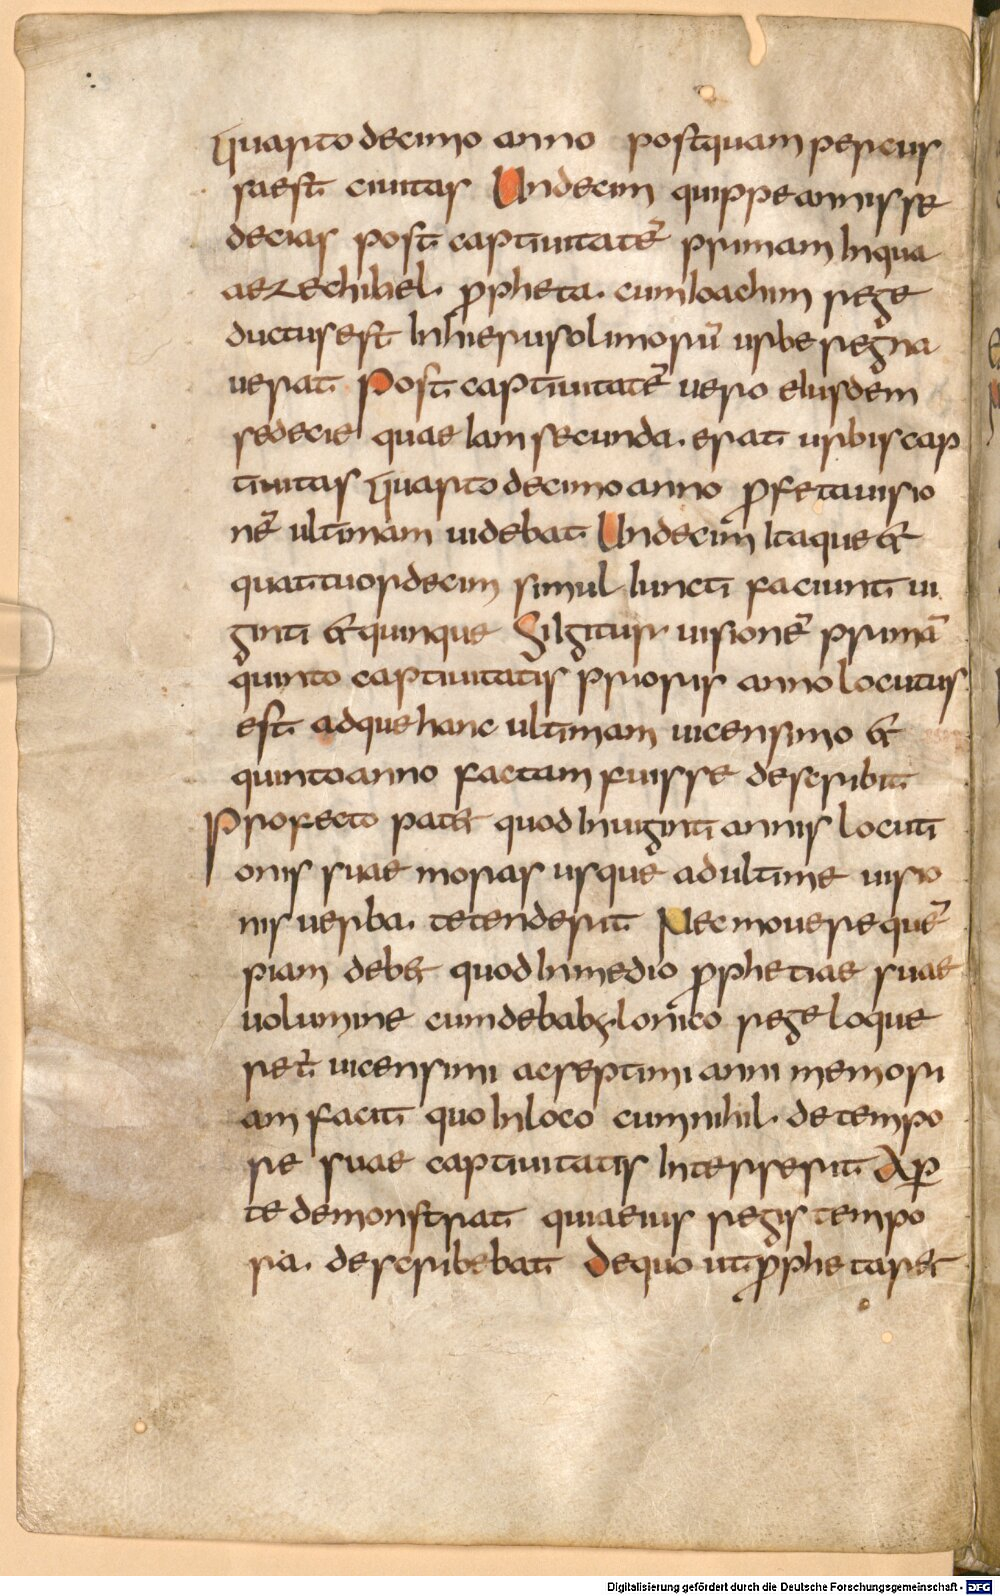 quarto decimo anno postquam percus
sa est ciuitas Undecim quippe annis se
decias post captiuitatē primam In qua
aezechihel. ꝓpheta. cum Ioachim rege
ductus est In hierusolimorū urbe regna
uerat Post captiuitatē uero eiusdem
sedecie quae Iam secunda. erat urbis cap
tiuitas quarto decimo anno ꝓfeta uisio
nē ultimam uidebat Undecim Itaque &
quattuordecim simul Iuncti faciunt ui
ginti & quinque Si Igitur uisionē primā
quinto captiuitatis prioris anno locutus
est adque hanc ultimam uicensimo &
quinto anno factam fuisse describit
Profecto pat& quod In uiginti annis locuti
onis suae moras usque ad ultime uisio
nis uerba. tetenderit Nec mouere quē
piam deb& quod In medio ꝓphetiae suae
uolumine cum de babylonico rege loque
ret̄ uicensimi ac septimi anni memori
am facit quo In loco cum nihil. de tempo
re suae captiuitatis Intersserit Aꝑ
te demonstrat quia eius regis tempo
ra. describebat De quo ut ꝓphetar&
Digitalisierung gefördert durch die Deutsche Forschungsgemeinschaft - DFG